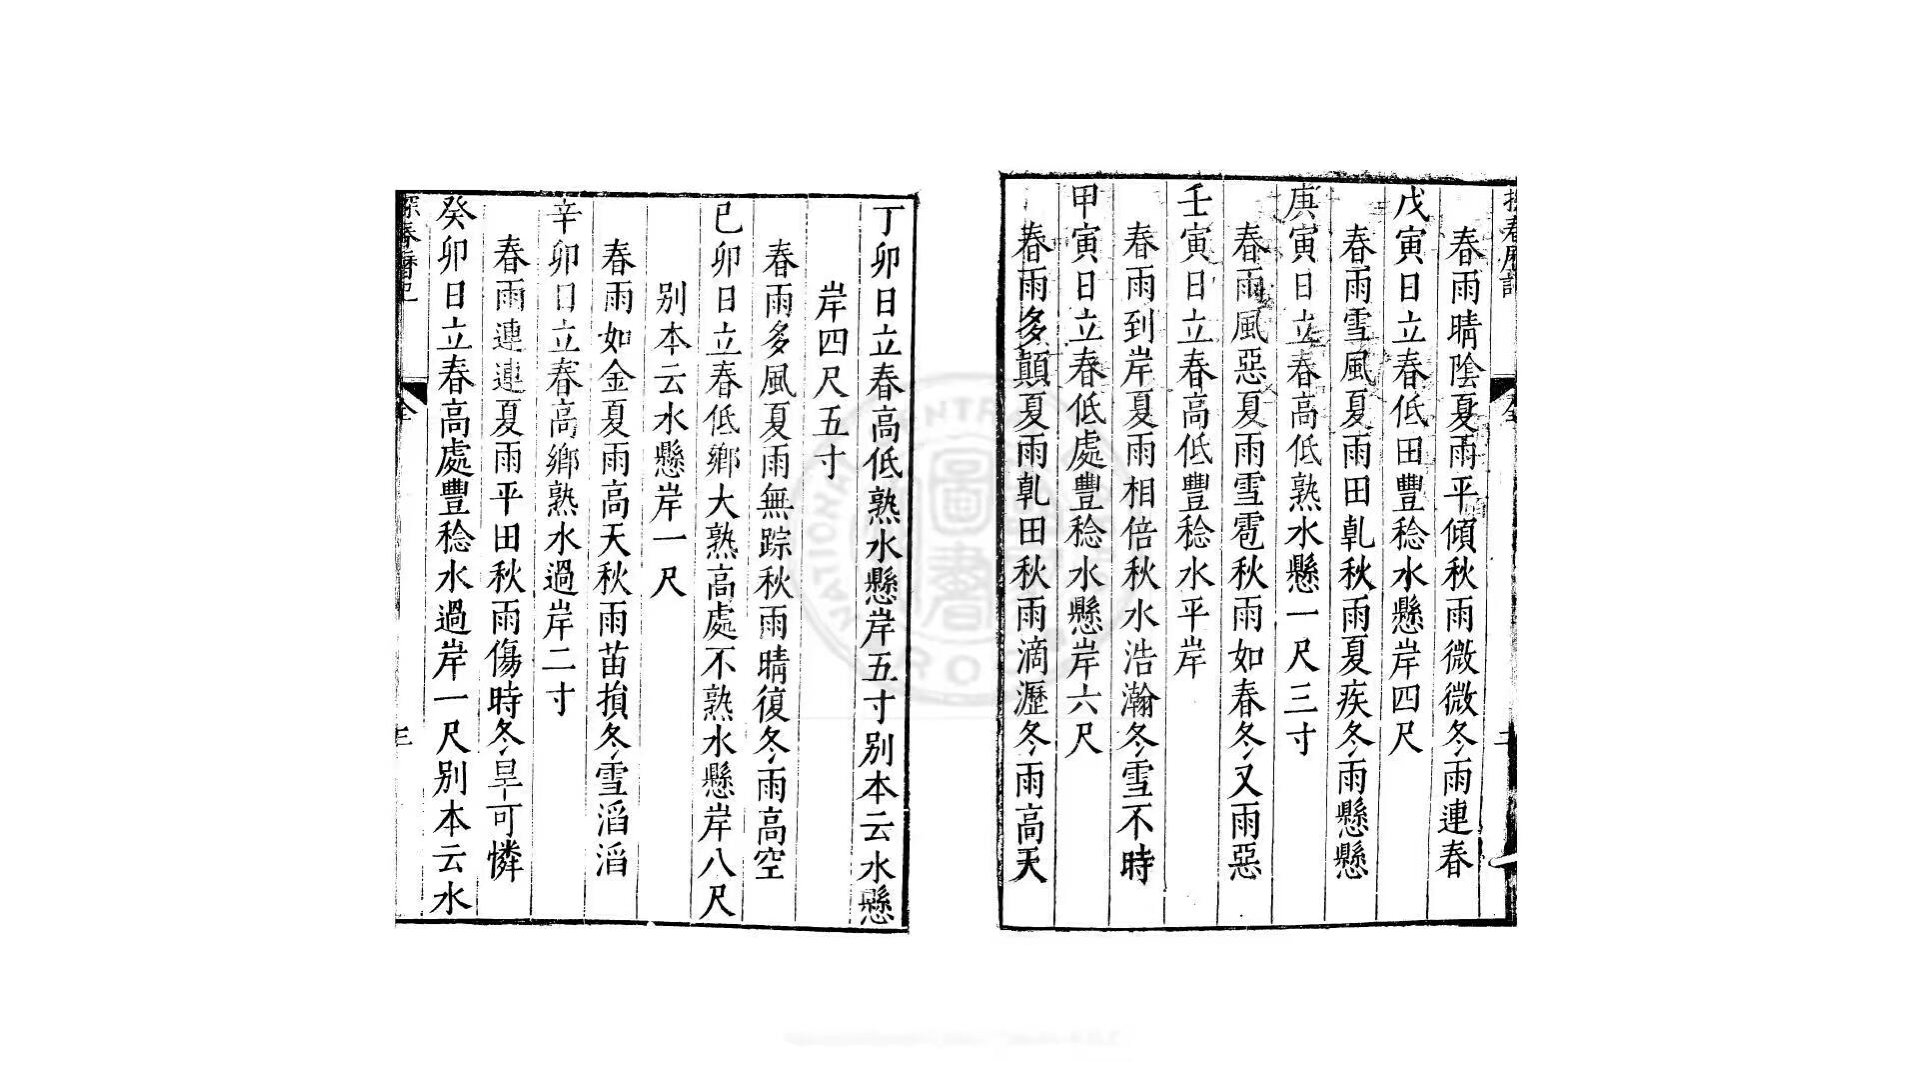 春雨晴陰夏雨平傾秋雨微微冬雨連春
戊寅日立春低田豐稔水懸岸四尺
春雨雪風夏雨田乹秋雨夏疾冬雨懸懸
庚寅日立春高低熟水懸一尺三寸
春雨風惡夏雨雪雹秋雨如春冬又雨惡
壬寅日立春高低豐稔水平岸
春雨到岸夏雨相倍秋水浩瀚冬雪不時
甲寅日立春低處豐稔水懸岸六尺
春雨多顛夏雨乹田秋雨滴瀝冬雨高天
丁卯日立春高低熟水懸岸五寸别本云水懸
岸四尺五寸
春雨多風夏雨無踪秋雨晴復冬雨高空
己卯日立春低鄉大熟高處不熟水懸岸八尺
别本云水懸岸一尺
春雨如金夏雨高天秋雨苗損冬雪滔滔
辛卯日立春高鄉熟水過岸二寸
春雨連連夏雨平田秋雨傷時冬旱可憐
癸卯日立春高處豐稔水過岸一尺别本云水